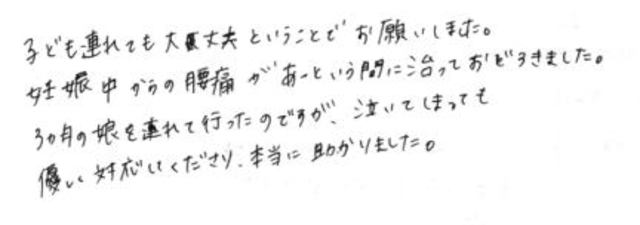 子ども連れても大丈夫ということでお願いしました。
妊娠中からの腰痛があーという間に治っておどろきました。
3カ月の娘を連れて行ったのですが、泣いてしまっても
優しく対応してくださり、本当に助かりました。